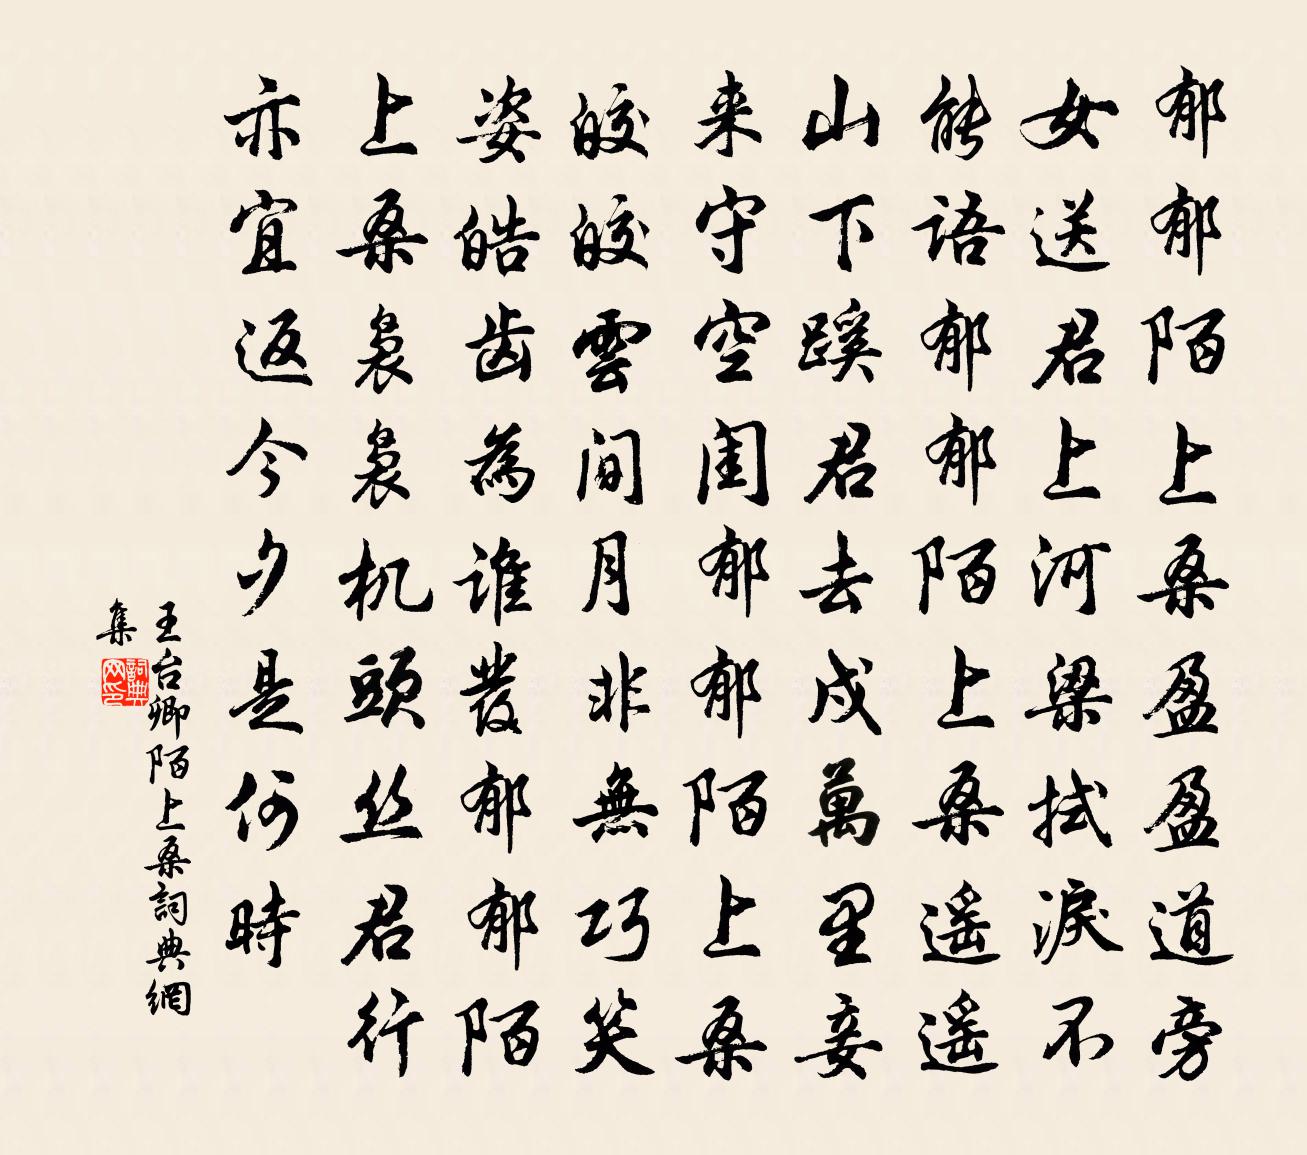 郁郁陌上桑盈盈道旁
女送君上河梁拭淚不
能語郁郁陌上桑遥遥
山下蹊君去戍萬里妾
来守空闺郁郁陌上桑
皎皎雲间月非無巧笑
姿皓齿為谁發郁郁陌
上桑袅袅机頭丝君行
亦宜返今夕是何時
王台卿陌上桑詞典網
集
詞典
网印